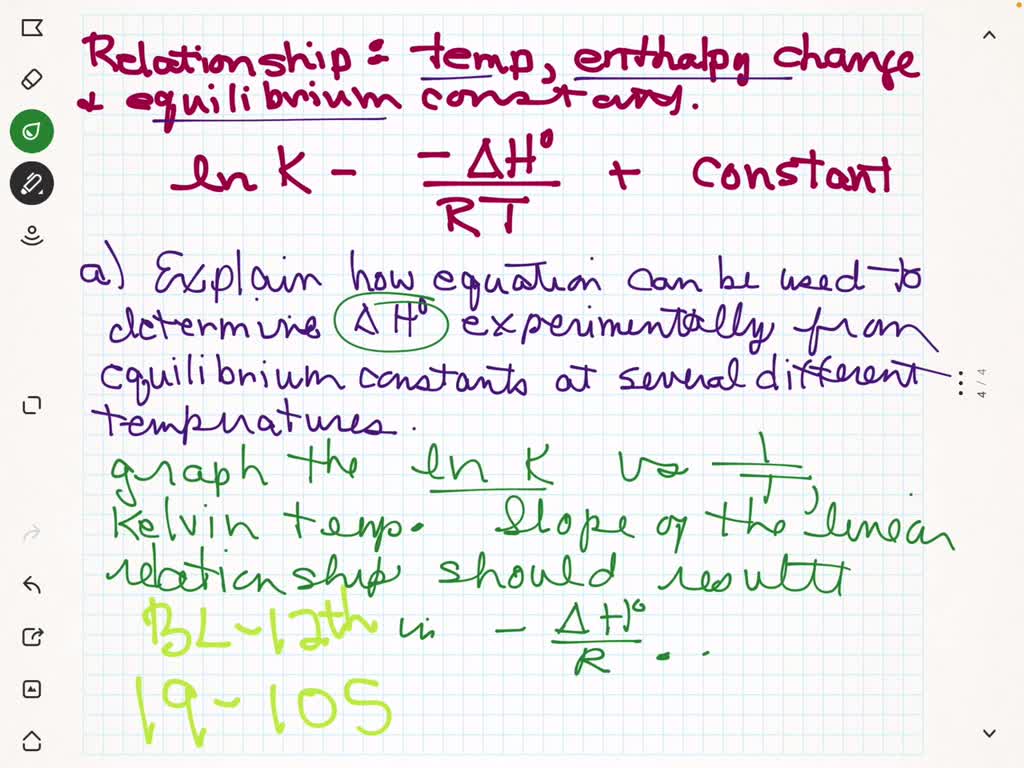 Relationship: temp, enthalpy change
& equilibrium constants.
ln K - -ΔH° / RT + constant
a) Explain how equation can be used to
determine ΔH° experimentally from
equilibrium constants at several different
tempratures.
graph the ln K vs 1/T,
Kelvin temp. Slope of the linear
relationship should result
BL-12th in - ΔH°/R ..
19-105
4/4